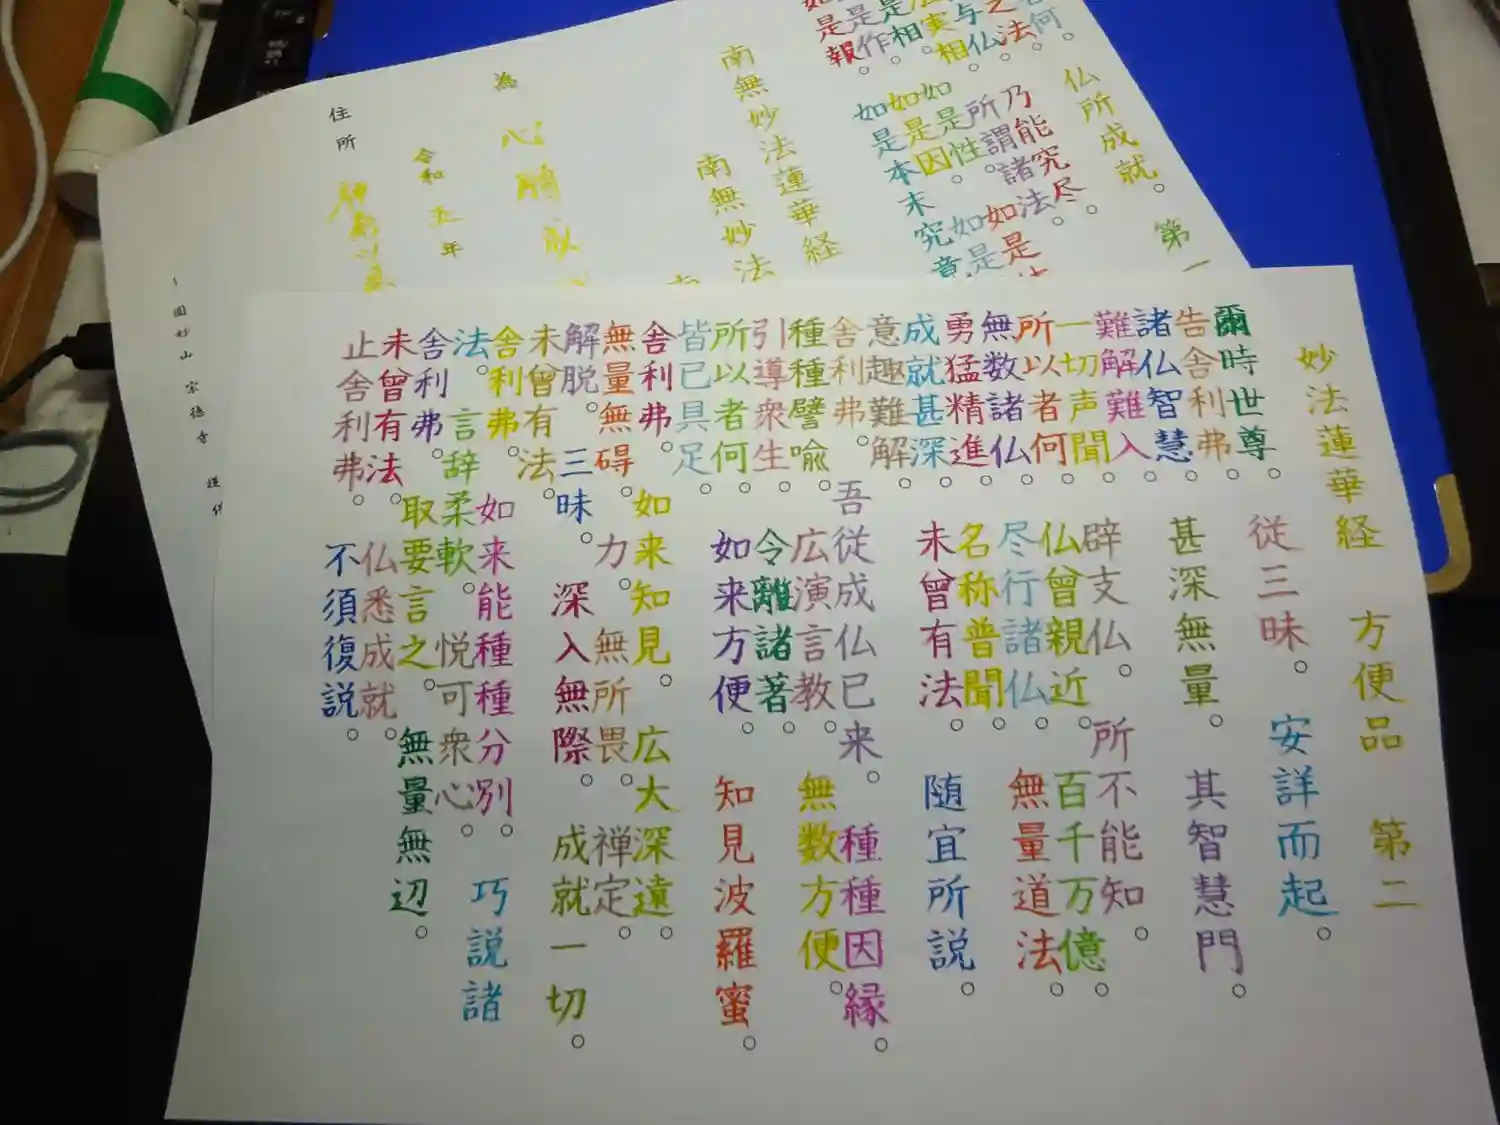 妙法蓮華経 方便品 第二
爾時世尊。 従三昧。 安詳而起。
告舎利弗。
諸仏智慧。 甚深無量。 其智慧門。
難解難入。
一切声聞。 辟支仏。 所不能知。
所以者何。 仏曾親近。 百千万億。
無数諸仏。 尽行諸仏。 無量道法。
勇猛精進。 名称普聞。
成就甚深。 未曾有法。 随宜所説。
意趣難解。
舎利弗。 吾従成仏已来。 種種因縁。
種種譬喩。 広演言教。 無数方便。
引導衆生。 令離諸著。
所以者何。 如来方便。 知見波羅蜜。
皆已具足。
舎利弗。 如来知見。 広大深遠。
無量無碍。 力。 無所畏。 禅定。
解脱。 三昧。 深入無際。 成就一切。
未曾有法。
舎利弗。 如来能種種分別。 巧説諸
法。 言辞柔軟。 悦可衆心。
舎利弗。 取要言之。 無量無辺。
未曾有法。 仏悉成就。
止舎利弗。 不須復説。
仏所成就。 第一
何。
之法。
与仏。 乃能究尽。
実相。 所謂諸法。
是相。 如是性。 如是
是作。 如是因。 如是
如是報。 如是本末究竟
南無妙法蓮華経
南無妙法
南
為 心願成
令和五年
住所
～圓妙山 宗徳寺 提供